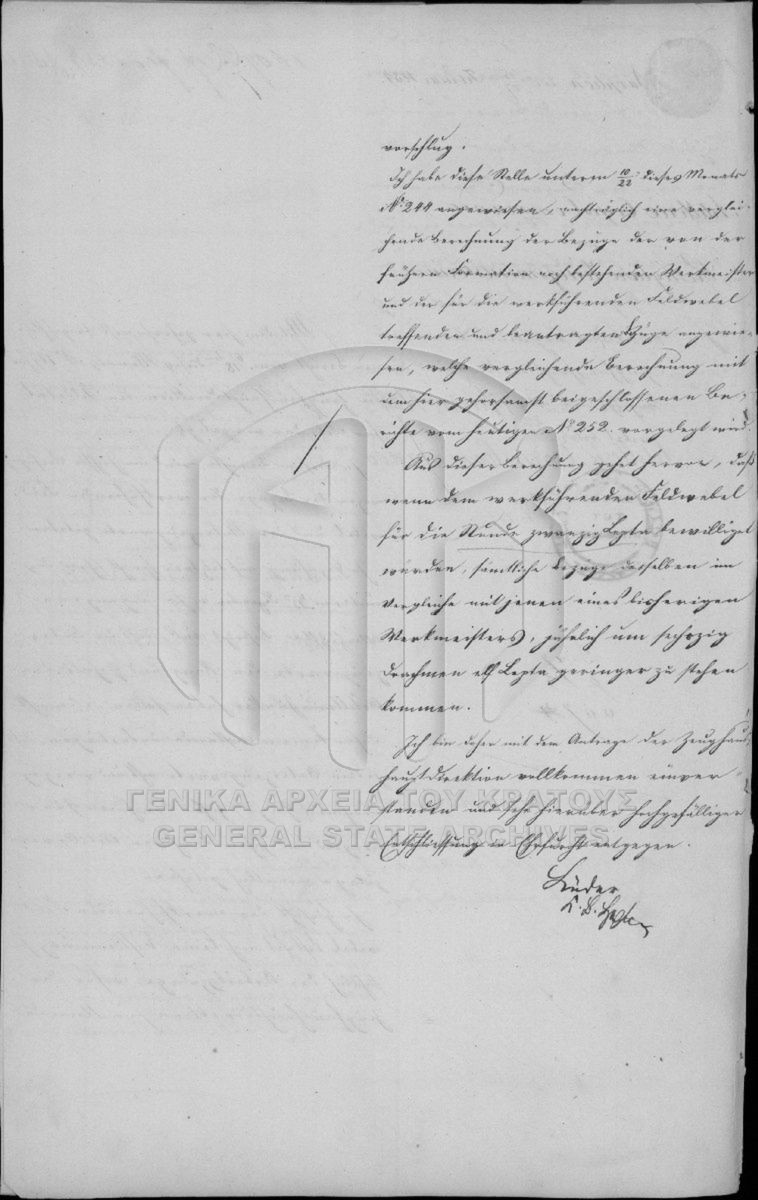 vorschlug.
Ich habe diese Stelle unterm 10/22 dieses Monats
No 244 angewiesen, nachträglich eine verglei-
chende Berechnung der Bezüge der von der
frühern Formation noch bestehenden Werkmeister
und der für die werkführenden Feldwebel
treffenden und beantragten Bezüge angewie-
sen, welche vergleichende Berechnung mit
um hier gehorsamst beigeschlossenen Be-
richte vom heutigen No 252. vorgelegt wird.
Aus dieser Berechnung gehet hervor, daß
wenn dem werkführenden Feldwebel
für die Stunde zwanzig Lepta bewilliget
würden, sämtliche Bezüge desselben im
Vergleiche mit jenen eines bisherigen
Werkmeisters, jährlich um sechzig
Drachmen elf Lepta geringer zu stehen
kommen.
Ich bin daher mit dem Antrage der Zeughaus-
hauptdirektion vollkommen einver-
standen und sehe hierüber hochgefälliger
Entschliessung in Ehrfurcht entgegen.
Lüder
ΓΕΝΙΚΑ ΑΡΧΕΙΑ ΤΟΥ ΚΡΑΤΟΥΣ
GENERAL STATE ARCHIVES